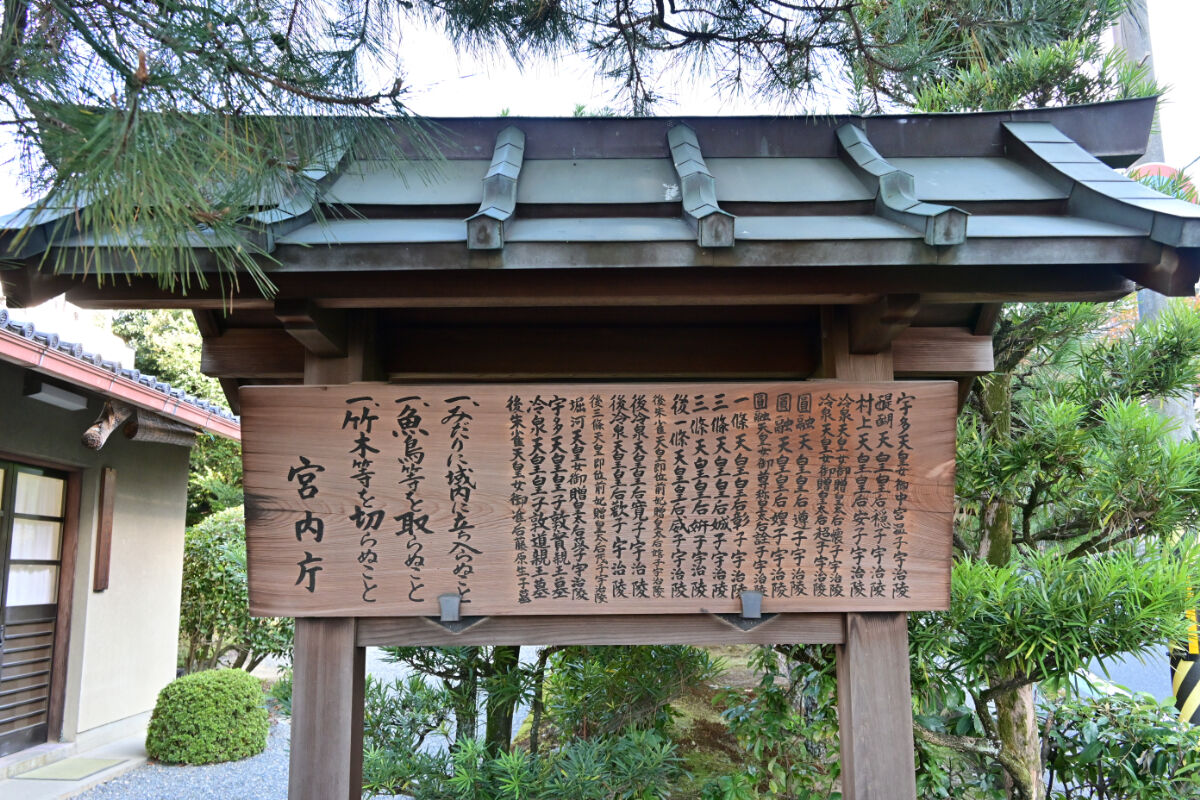 宇多天皇女御中宮温子宇治陵
醍醐天皇皇后穏子宇治陵
村上天皇皇后安子宇治陵
冷泉天皇女御贈皇太后懐子宇治陵
冷泉天皇女御贈皇太后超子宇治陵
圓融天皇皇后遵子宇治陵
圓融天皇皇后媓子宇治陵
圓融天皇女御尊称皇太后詮子宇治陵
一條天皇皇后彰子宇治陵
三條天皇皇后娍子宇治陵
三條天皇皇后妍子宇治陵
後一條天皇皇后威子宇治陵
後朱雀天皇即位前妃贈皇太后嬉子宇治陵
後冷泉天皇皇后寛子宇治陵
後冷泉天皇皇后歓子宇治陵
後三條天皇即位前妃贈皇太后茂子宇治陵
堀河天皇女御贈皇太后苡子宇治陵
宇多天皇皇子敦實親王墓
冷泉天皇皇子敦道親王墓
後朱雀天皇女御准后藤原生子墓
一、みだりに域内に立ち入らぬこと
一、魚鳥等を取らぬこと
一、竹木等を切らぬこと
宮内庁